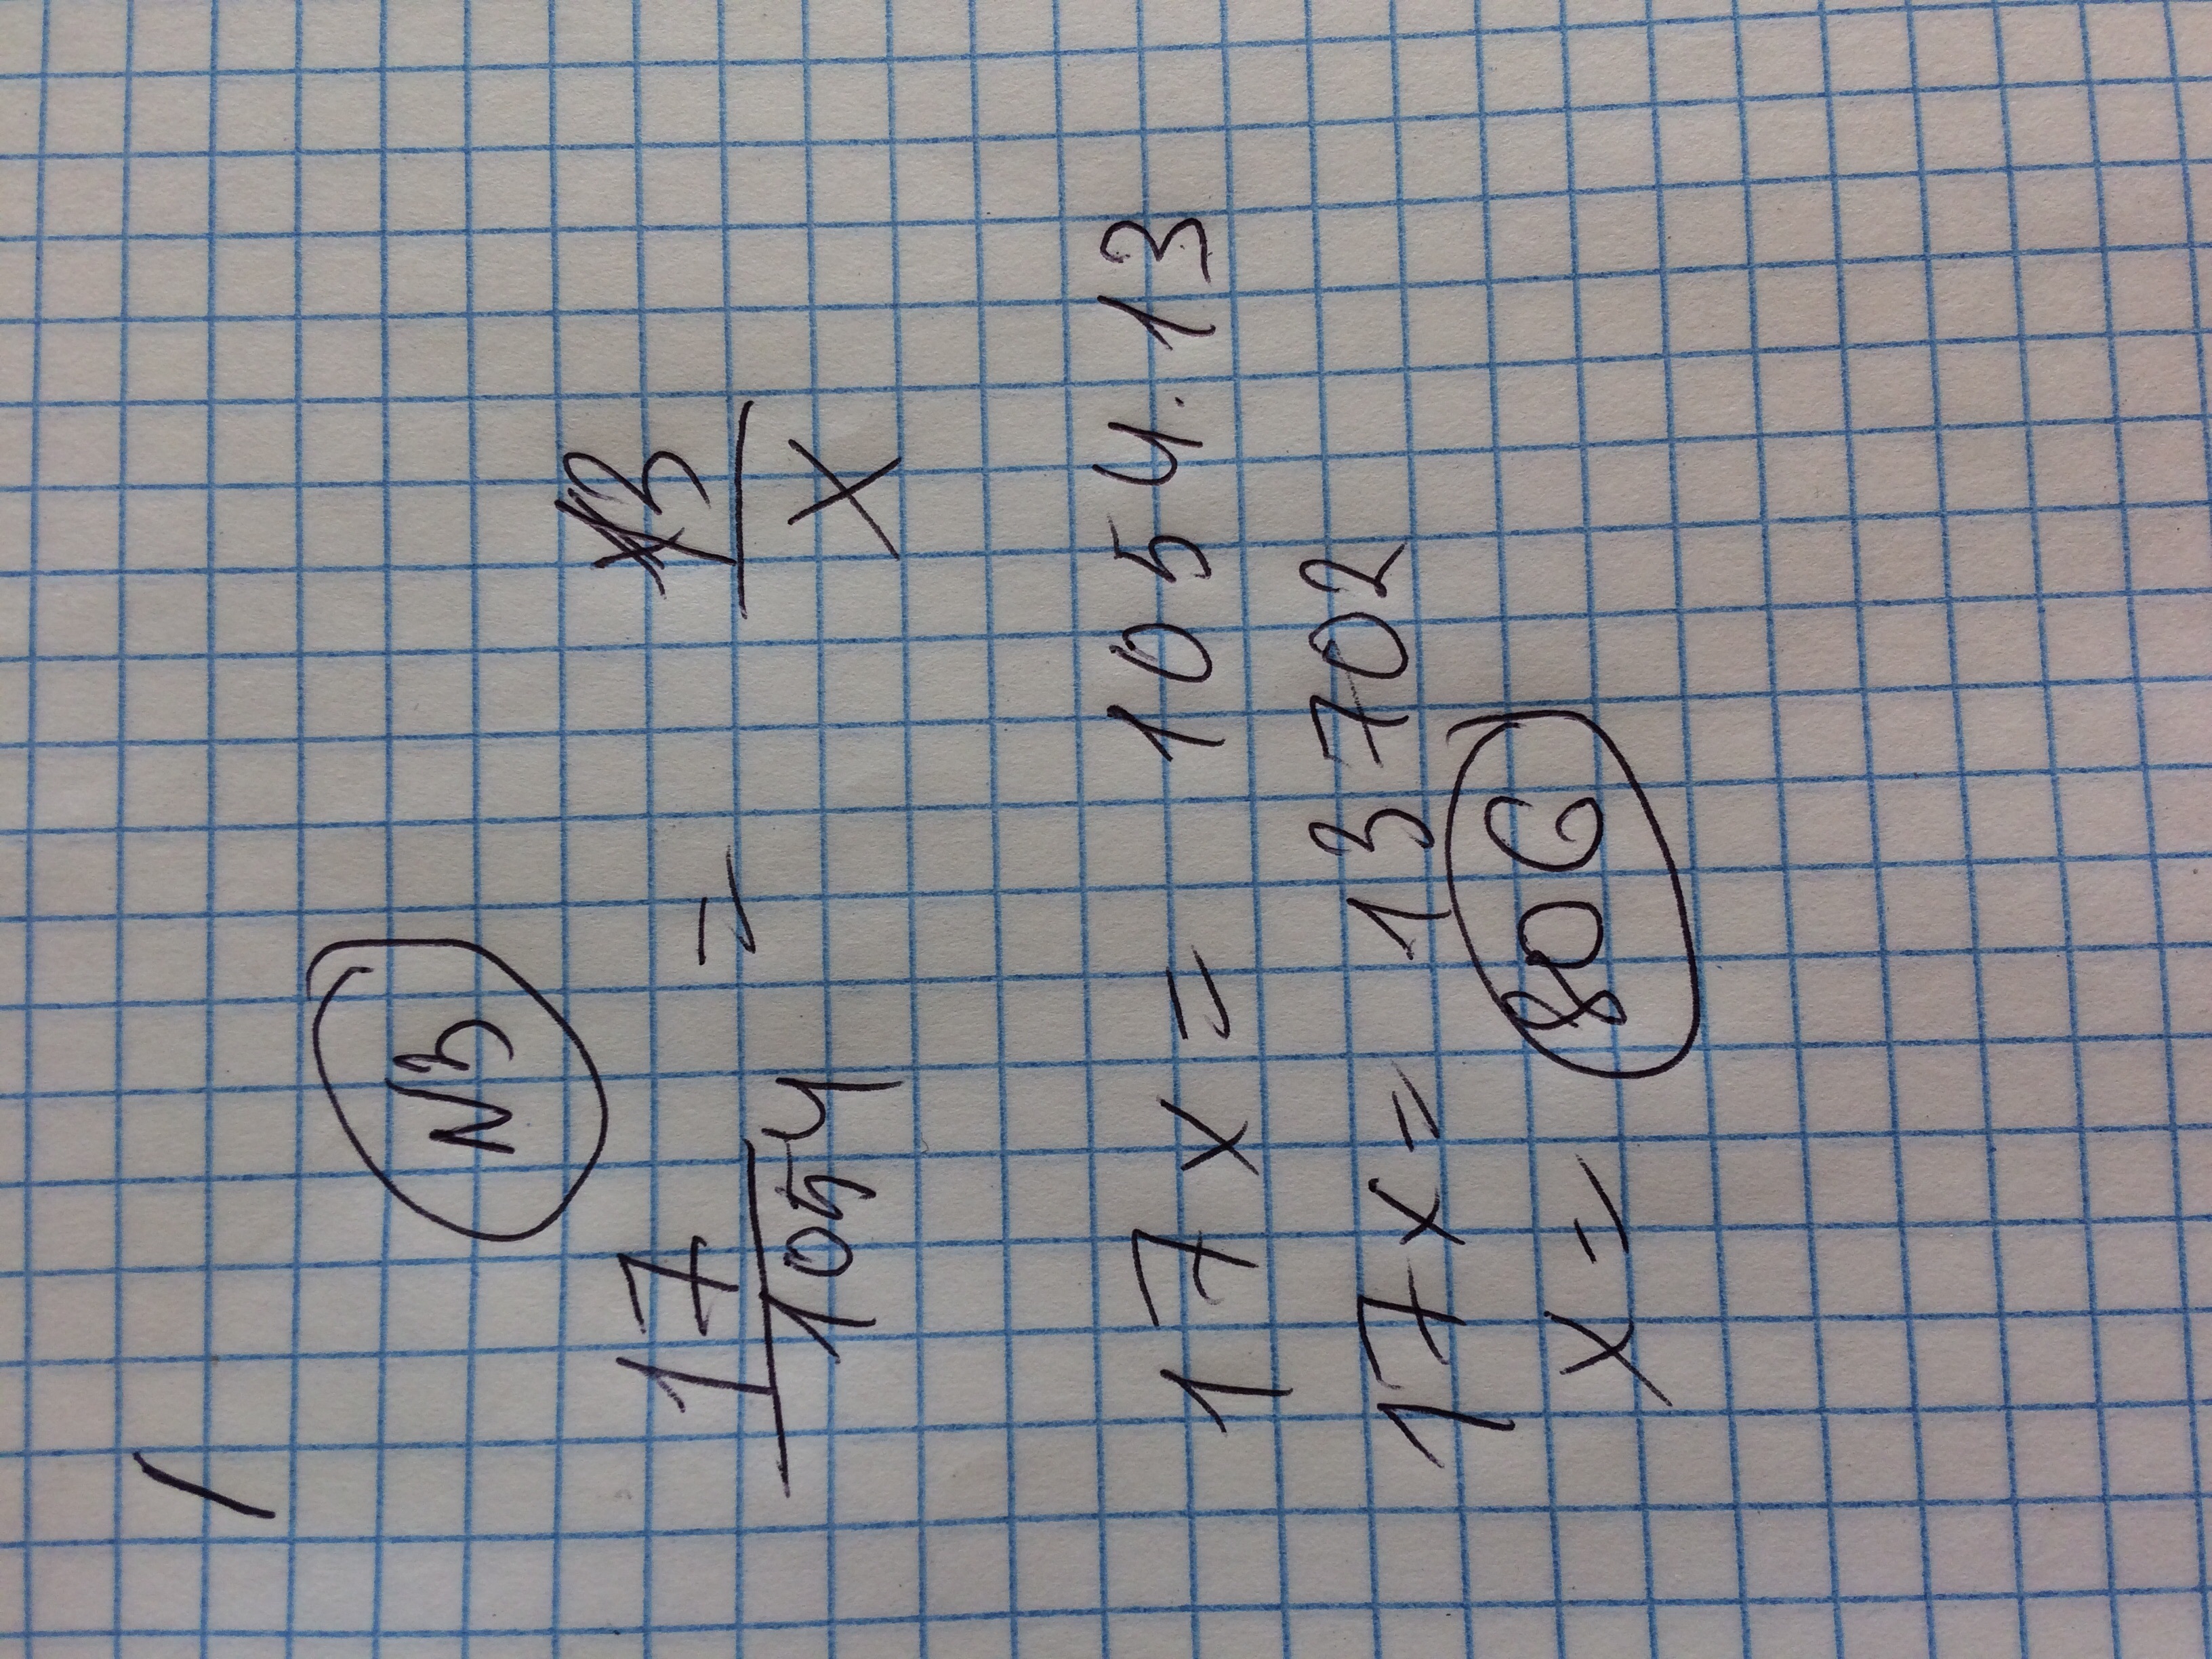 N3
17/1054 = 13/x
17x = 1054·13
17x = 13702
x = 806